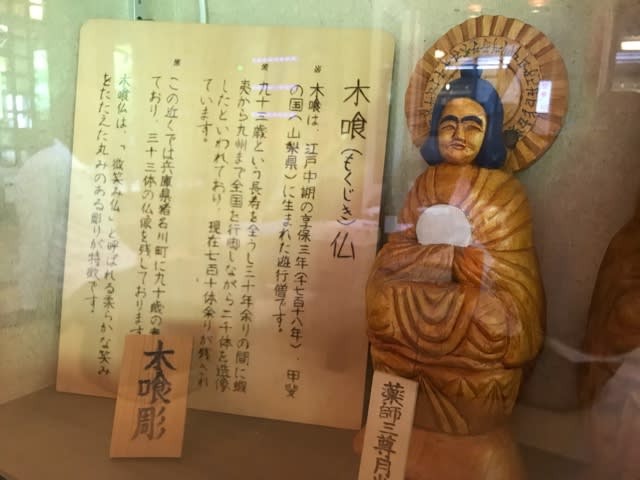 木喰(もくじき)仏
木喰は、江戸中期の享保三年(千七百十八年)、甲斐
の国(山梨県)に生まれた遊行僧です。
九十三歳という長寿を全うし三十年余りの間に蝦
夷から九州まで全国を行脚しながら二千体を造像
したといわれており、現在七百十体余りが残され
ています。
この近くでは兵庫県猪名川町に九十歳の
ており、三十三体の仏像を残しております
木喰仏は、「微笑み仏」と呼ばれる柔らかな笑み
をたたえた丸みのある彫りが特徴です。
木喰彫
薬師三尊月光